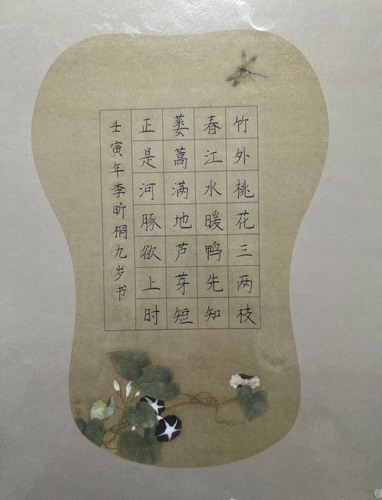 竹外桃花三两枝
春江水暖鸭先知
蒌蒿满地芦芽短
正是河豚欲上时
壬寅年李昕桐九岁书